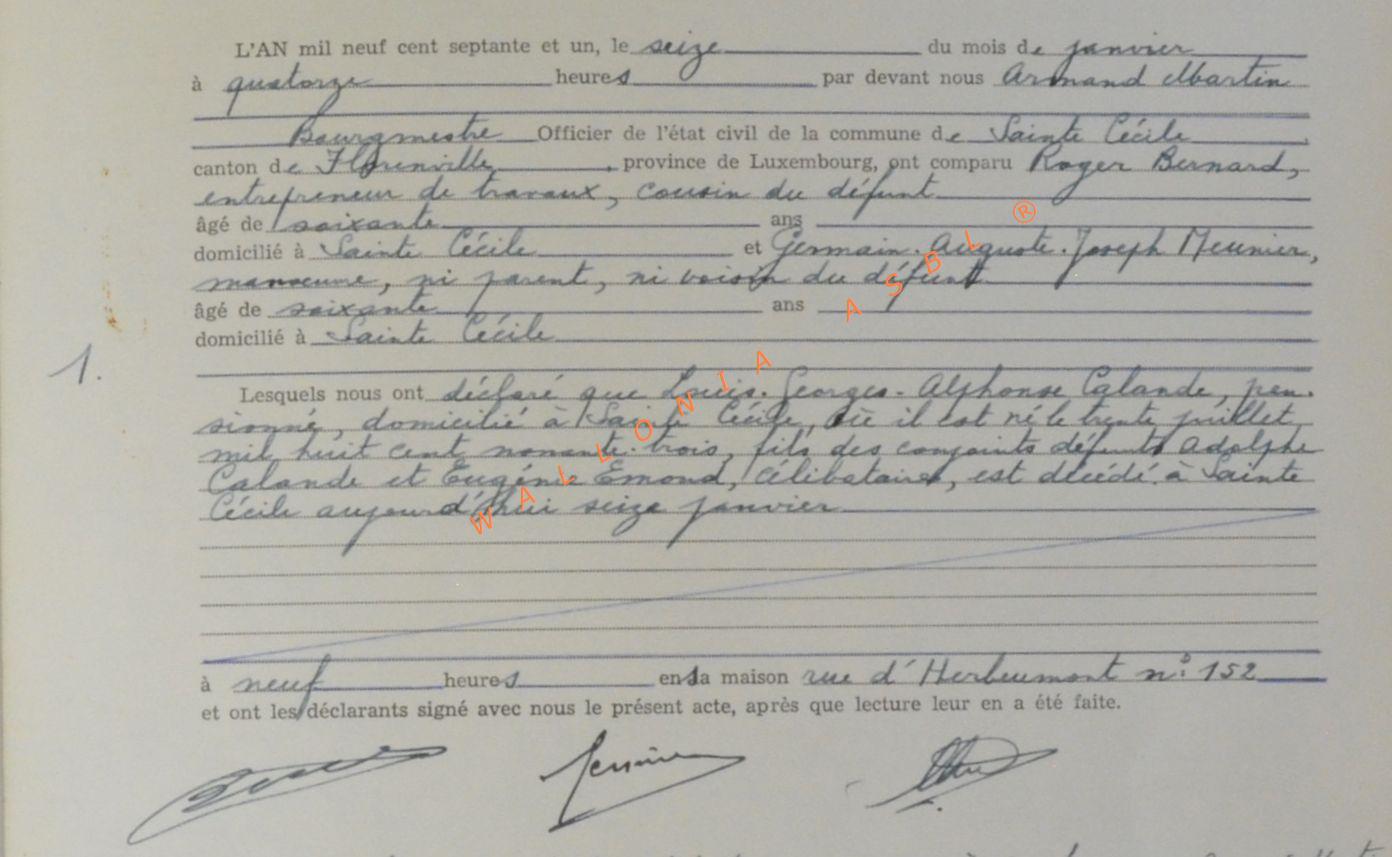 L'AN mil neuf cent septante et un, le seize du mois de janvier
à quatorze heures par devant nous Armand Martin
Bourgmestre Officier de l'état civil de la commune de Sainte Cécile
canton de Florenville, province de Luxembourg, ont comparu Roger Bernard,
entrepreneur de travaux, cousin du défunt
âgé de soixante ans
domicilié à Sainte Cécile et Germain-Auguste-Joseph Meunier,
manoeuvre, ni parent, ni voisin du défunt
âgé de soixante ans
domicilié à Sainte Cécile
1.
Lesquels nous ont déclaré que Louis-Georges-Alphonse Calande, pen-
sionné, domicilié à Sainte Cécile, où il est né le trente juillet
mil huit cent nonante-trois, fils des conjoints défunts Adolphe
Calande et Eugénie Emond, célibataire, est décédé à Sainte
Cécile aujourd'hui seize janvier
à neuf heures en sa maison rue d'Herbeumont n° 152
et ont les déclarants signé avec nous le présent acte, après que lecture leur en a été faite.
WALLONIA ASBL ®